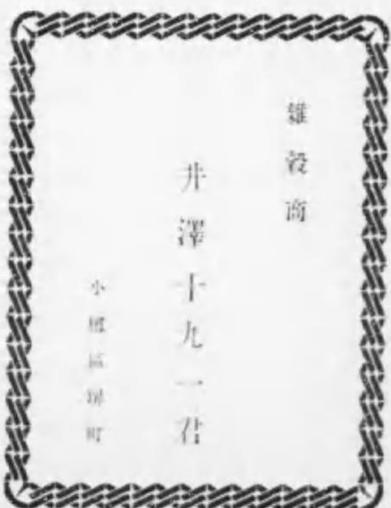 雑穀商
井澤十九一君
小樽區堺町